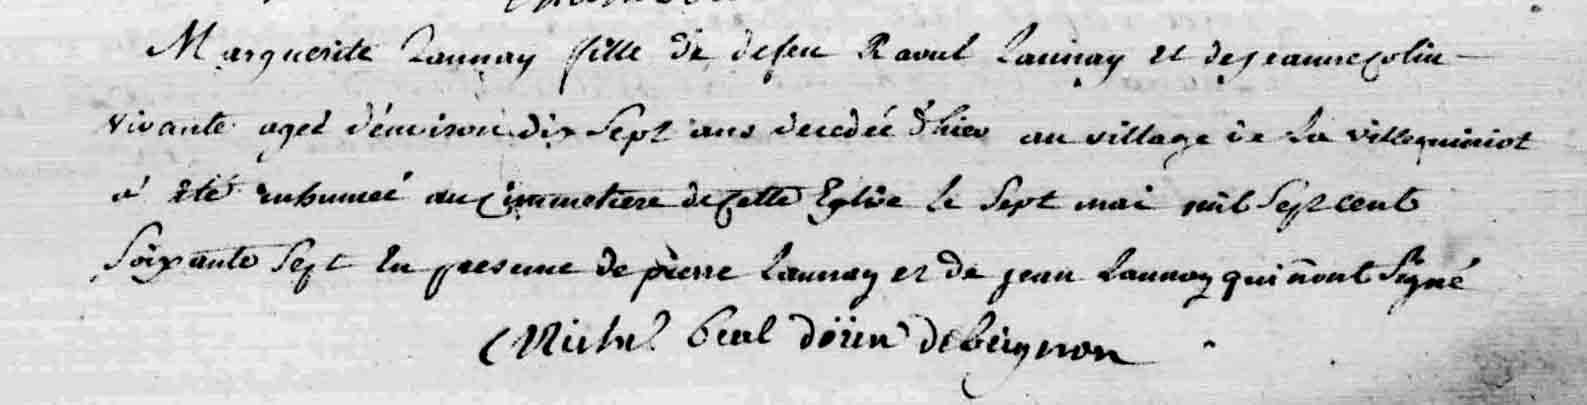 Marguerite Launay fille de defeu Raoul Launay et de jeanne colin
vivante ageé d'environ dix sept ans decedeé d'hier au village de la villeguiniot
a été inhumeé au cimmetiere de cette Eglise le sept mai mil sept cent
soixante sept en presence de pierre Launay et de jean Launay qui n'ont signé
Michel